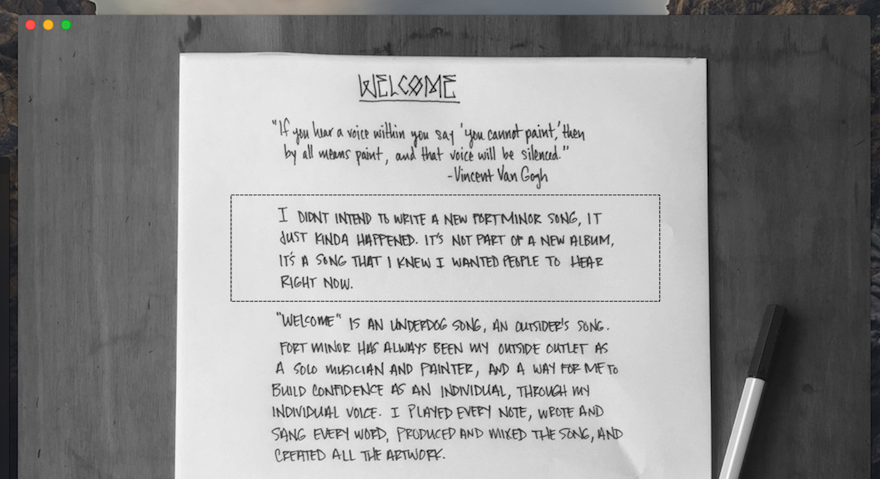 WELCOME
"If you hear a voice within you say 'you cannot paint,' then
by all means paint, and that voice will be silenced."
-Vincent Van Gogh
I DIDNT INTEND TO WRITE A NEW FORT MINOR SONG, IT
JUST KINDA HAPPENED. IT'S NOT PART OF A NEW ALBUM,
IT'S A SONG THAT I KNEW I WANTED PEOPLE TO HEAR
RIGHT NOW.
"WELCOME" IS AN UNDERDOG SONG, AN OUTSIDER'S SONG.
FORT MINOR HAS ALWAYS BEEN MY OUTSIDE OUTLET AS
A SOLO MUSICIAN AND PAINTER, AND A WAY FOR ME TO
BUILD CONFIDENCE AS AN INDIVIDUAL, THROUGH MY
INDIVIDUAL VOICE. I PLAYED EVERY NOTE, WROTE AND
SANG EVERY WORD, PRODUCED AND MIXED THE SONG, AND
CREATED ALL THE ARTWORK.